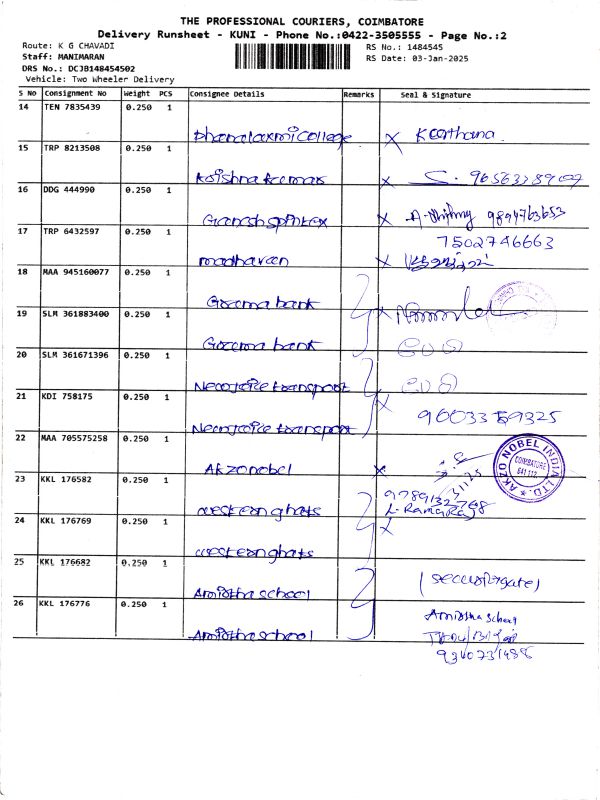 THE PROFESSIONAL COURIERS, COIMBATORE
Delivery Runsheet - KUNI - Phone No.:0422-3505555 - Page No.:2
Route: K G CHAVADI
RS No.: 1484545
Staff: MANIMARAN
RS Date: 03-Jan-2025
DRS No.: DCJB148454502
Vehicle: Two Wheeler Delivery
S No Consignment No Weight PCS Consignee Details Remarks Seal & Signature
14 TEN 7835439 0.250 1
Dhanalaxmi college X Keerthana
15 TRP 8213508 0.250 1
Krishna kumar X
16 DDG 444990 0.250 1
Ganesh spintex X 9894763653
17 TRP 6432597 0.250 1
7502746663
madhavan X
18 MAA 945160077 0.250 1
Grama bank
19 SLM 361883400 0.250 1
X
Grama bank
20 SLM 361671396 0.250 1
transport
21 KDI 758175 0.250 1
X
transport
22 MAA 705575258 0.250 1
Akzonobel X
AKZO NOBEL INDIA LTD.
COIMBATORE
641 112
23 KKL 176582 0.250 1
western ghats
L. Ramaraj
24 KKL 176769 0.250 1
X
western ghats
25 KKL 176682 0.250 1
Amirtha school
(Security gate)
26 KKL 176776 0.250 1
Amirtha school
Amirtha school